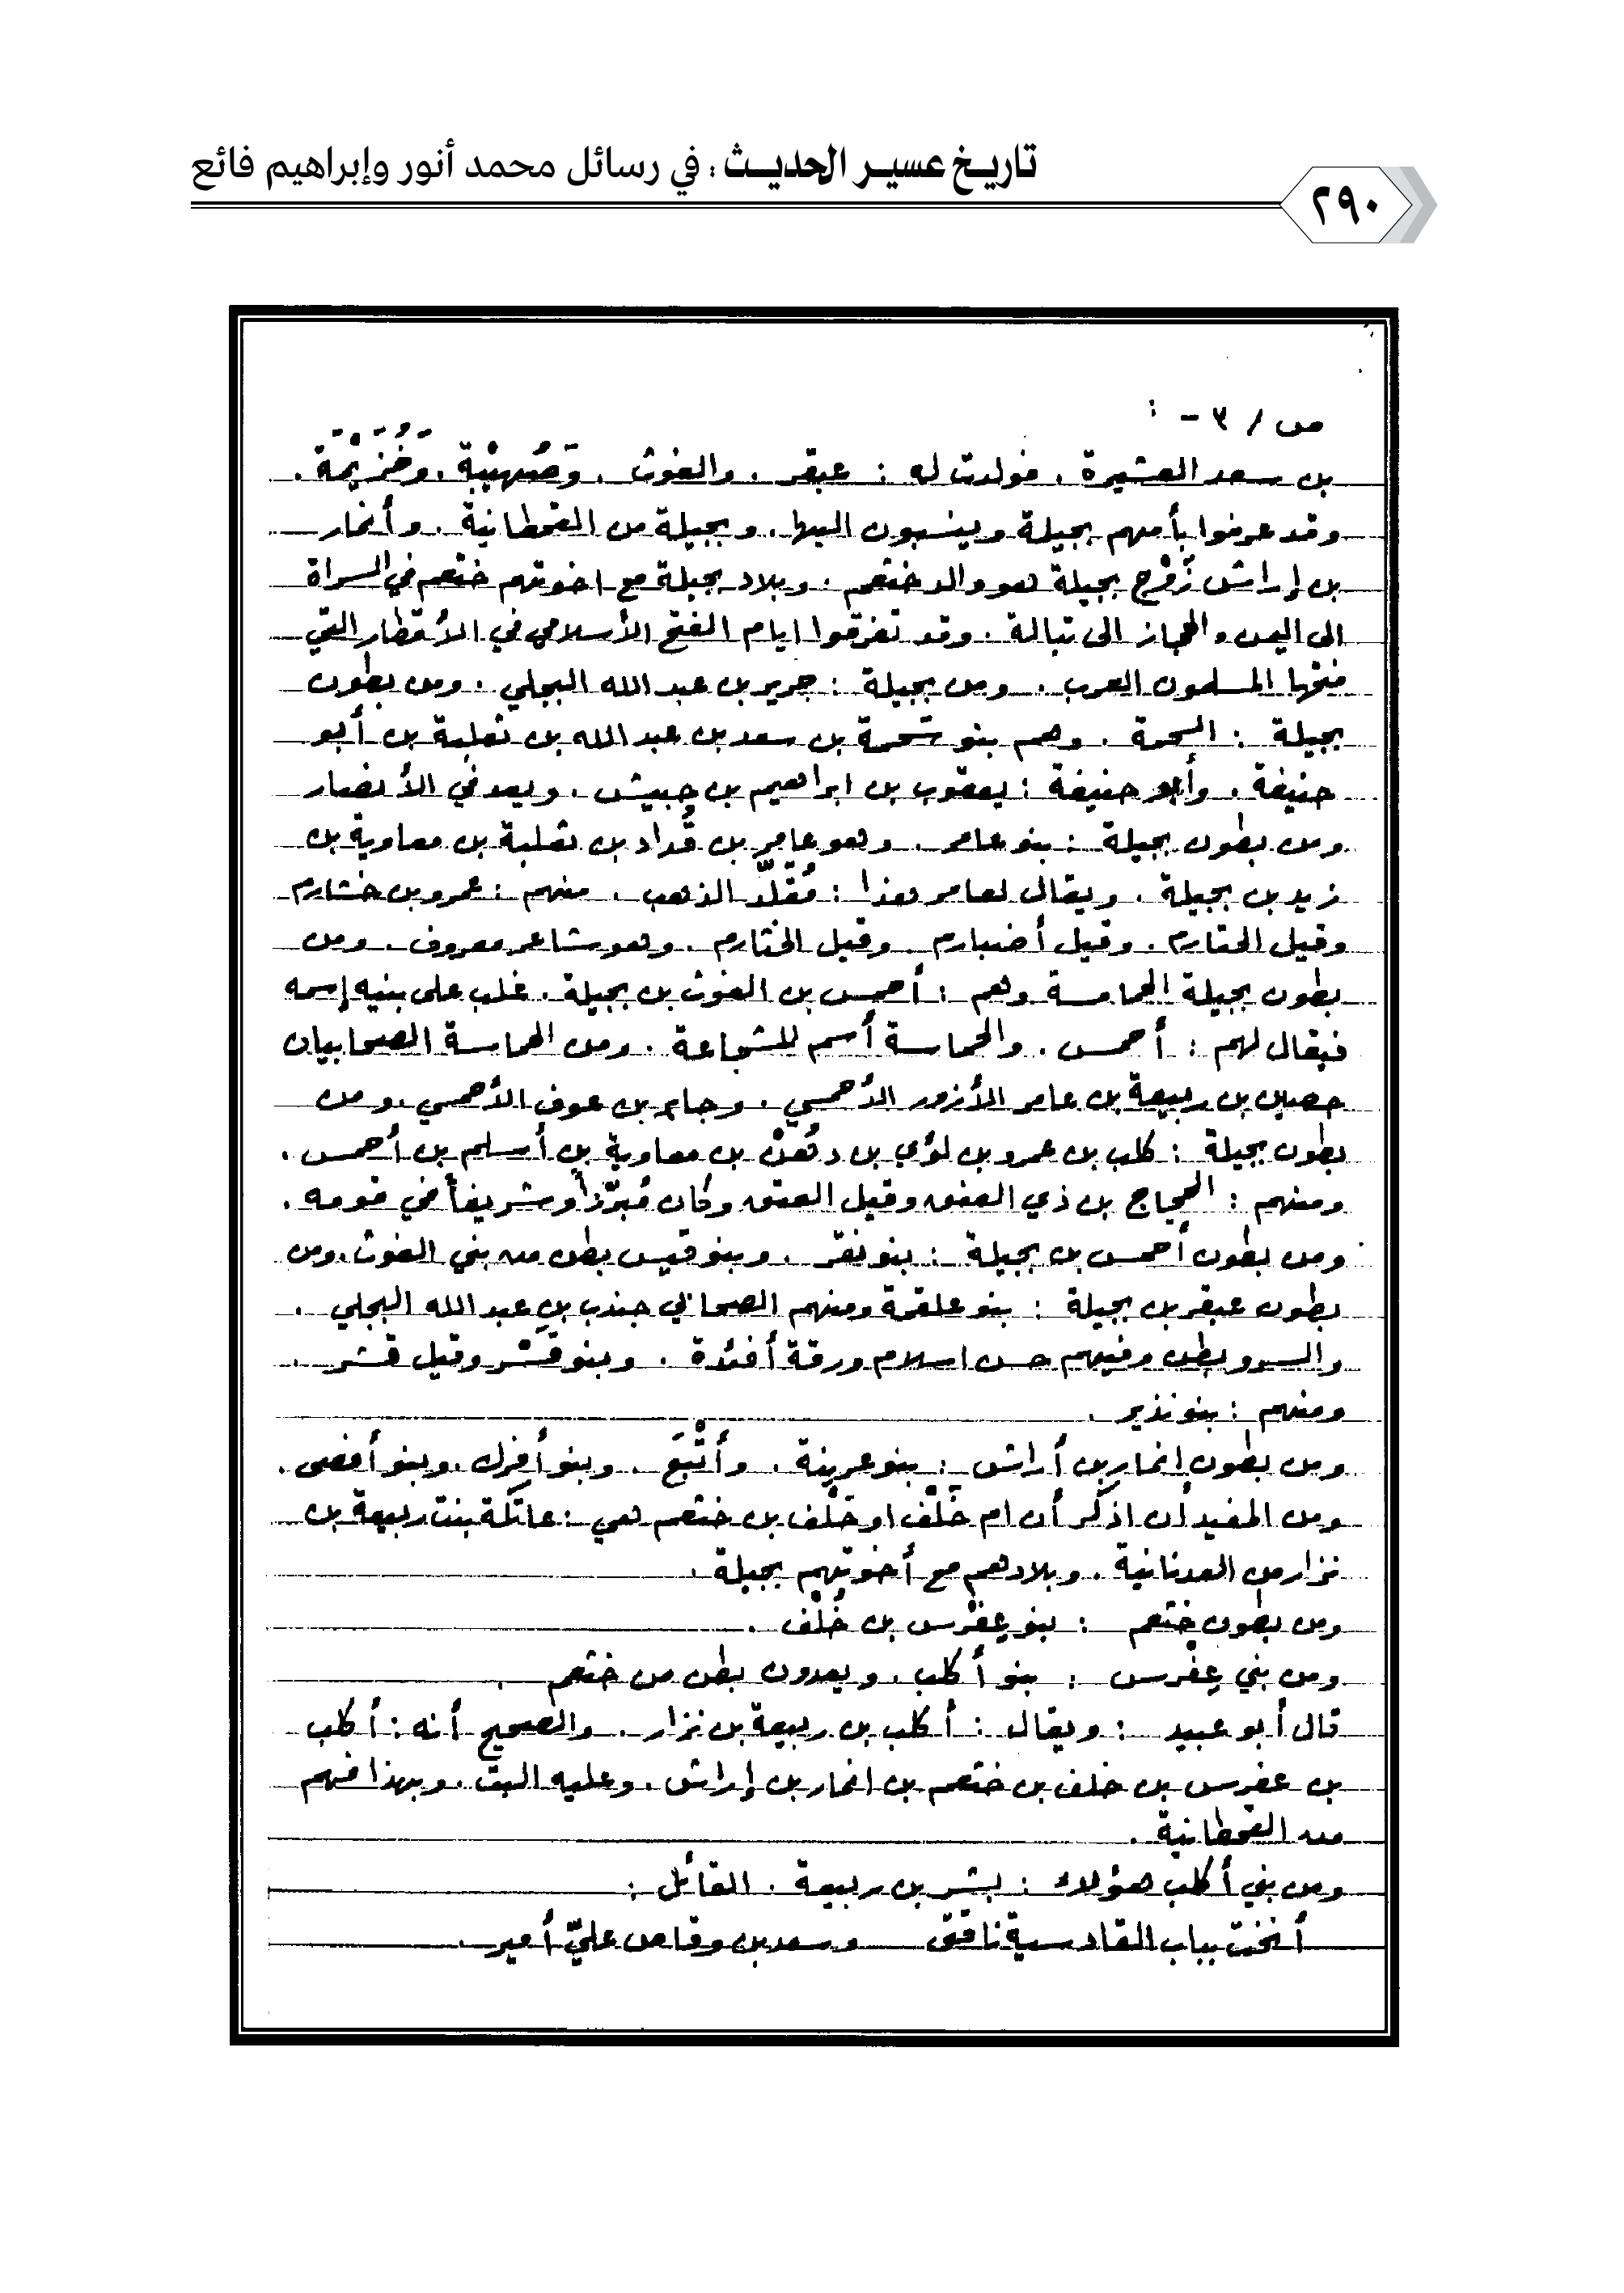 تاريخ عسير الحديث : في رسائل محمد أنور وإبراهيم فائع
٢٩٠
ص / ٣ - :
بن سعد العشيرة . فولدت له : عبقر . والغوث . وَصُهيْبة . وَخُزَيْمَة .
وقد عرفوا بأمهم بجيلة وينسبون اليها . وبجيلة من القحطانية . وأنمار
بن إراش زَوْج بجيلة هو والد خثعم . وبلاد بجيلة مع اخوتهم خثعم في السراة
الى اليمن والحجاز الى تبالة . وقد تفرقوا ايام الفتح الأسلامي في الأقطار التي
فتحها المسلمون العرب . ومن بجيلة : جرير بن عبد الله البجلي . ومن بطون
بجيلة : السحمة . وهم بنو سَحمة بن سعد بن عبد الله بن ثعلبة بن أبو
حنيفة . وأبو حنيفة : يعقوب بن ابراهيم بن حبيش . ويعد في الأنصار
ومن بطون بجيلة : بنو عامر . وهو عامر بن قُداد بن ثعلبة بن معاوية بن
زيد بن بجيلة . ويقال لعامر هذا : مُقَلّد الذهب . منهم : عمرو بن خشارم
وقيل الخثارم . وقيل أضبارم . وقيل الخثارم . وهو شاعر معروف . ومن
بطون بجيلة الحمامسة وهم : أحمس بن الغوث بن بجيلة . غلب على بنيه إسمه
فيقال لهم : أحمس . والحماسة أسم للشجاعة . ومن الحماسة الصحابيان
حصين بن ربيعة بن عامر الأزور الأحمسي . وجابر بن عوف الأحمسي . ومن
بطون بجيلة : كلب بن عمرو بن لؤي بن دُهن بن معاوية بن أسلم بن أحمس .
ومنهم : الحجاج بن ذي العنق وقيل العتق وكان مُبرّزاً وشريفاً في قومه .
ومن بطون أحمس بن بجيلة : بنو نفر . وبنو قيس بطن من بني الغوث . ومن
بطون عبقر بن بجيلة : بنو علقمة ومنهم الصحابي جندب بن عبد الله البجلي .
والسرو بطن وفيهم حسن اسلام ورقة أفئدة . وبنو قَسْر وقيل قشر .
ومنهم : بنو نذير .
ومن بطون انمار بن أراش : بنو عرينة . وأَتْبَع . وبنو أفرك . وبنو أفصى .
ومن المفيد أن اذكر أن ام خَلْف او خَلَف بن خثعم هي : عاتكة بنت ربيعة بن
نزار من العدنانية . وبلادهم مع أخوتهم بجيلة .
ومن بطون خثعم : بنو عِفْرس بن خُلْف .
ومن بني عِفْرس : بنو أكلب . ويعدون بطن من خثعم .
قال أبو عبيد : ويقال : أكلب بن ربيعة بن نزار . والصحيح أنه : أكلب
بن عفرس بن خلف بن خثعم بن انمار بن إراش . وعليه البت . وبهذا فهم
من القحطانية .
ومن بني أكلب هؤلاء : بشر بن ربيعة . القائل :
أنخت بباب القادسية ناقتي وسعد بن وقاص عليّ أمير .